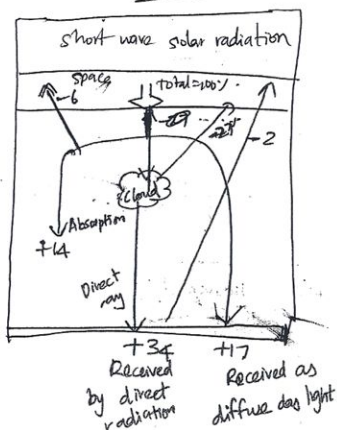 short wave solar radiation
space
Total=100%
-6
-27
-2
cloud
Absorption
+14
Direct
ray
+34
+17
Received
by direct
radiation
Received as
diffuse day light